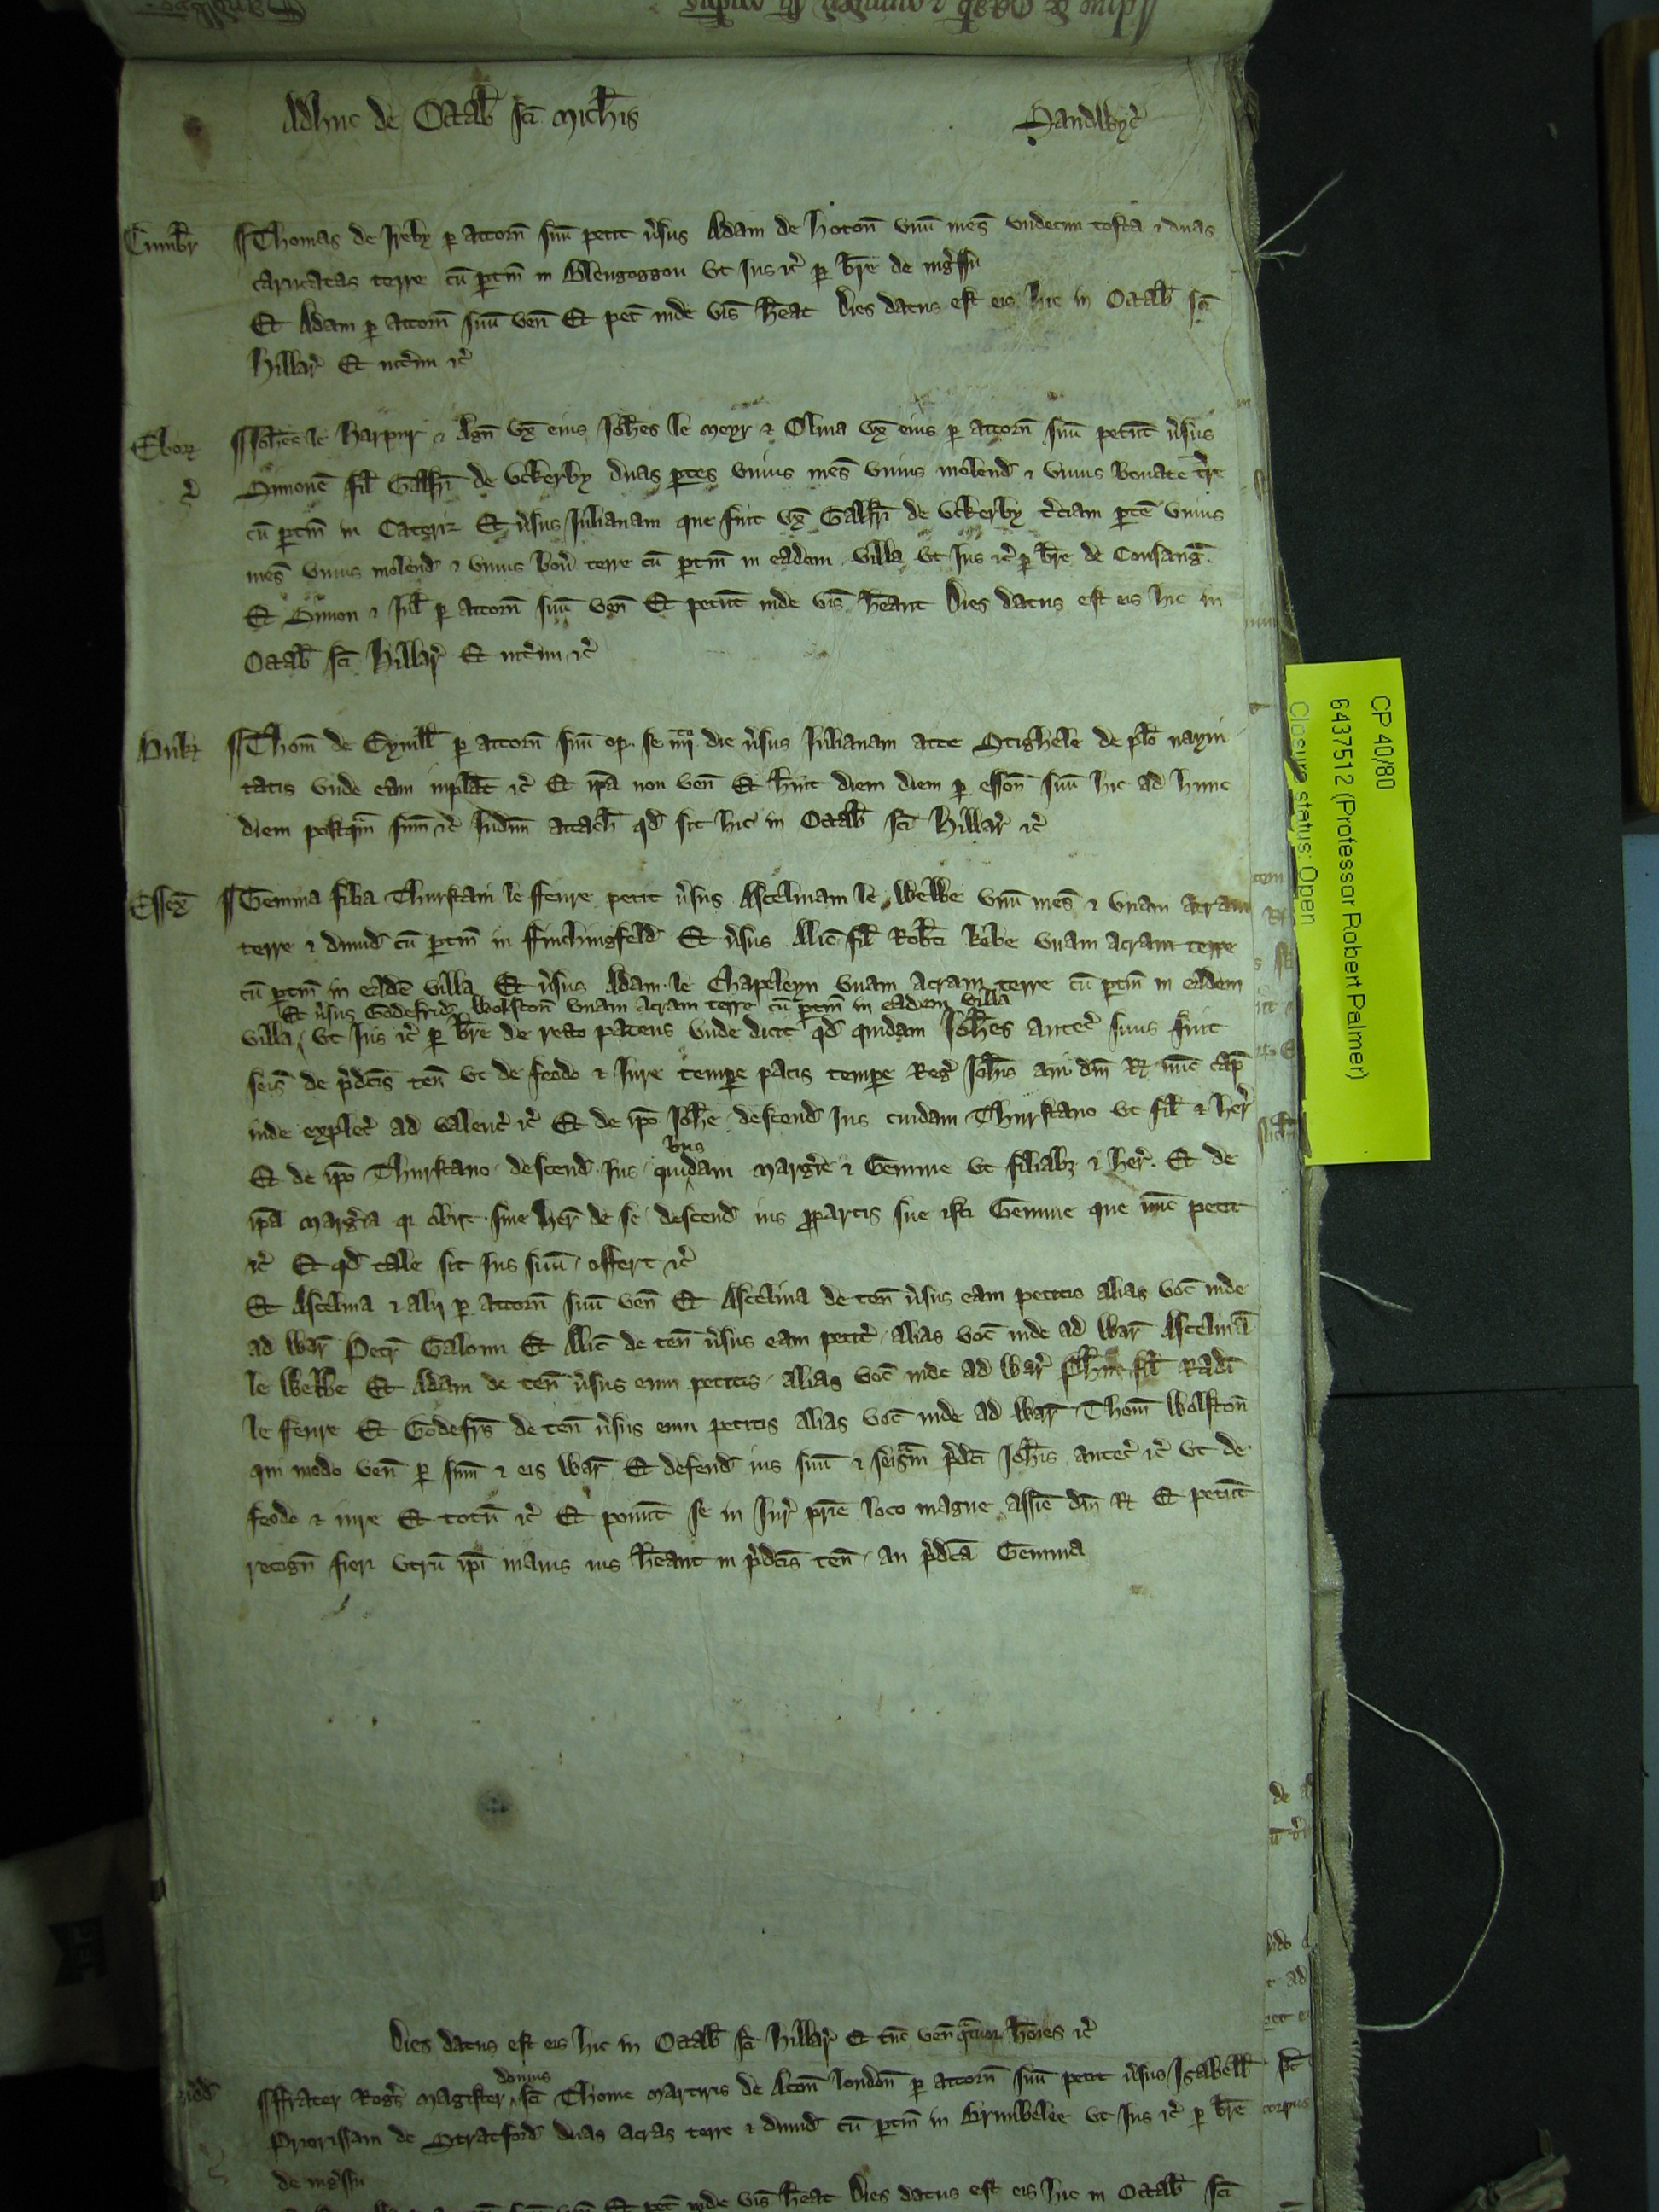 Adhuc de Octab̄ sc̄i Mich̄is Sandwyc̉
Cumbr̄ Thomas de Ireby p̱ attorn̄ suū petit ṽsus Adam de Hoton̄ vnū mes̄ vndecim tofta ⁊ duas
carucatas terre cū p̱tin̄ in Blengoggou vt Ius ⁊c̉ p̱ br̄e de ing̉ssu
Et Adam p̱ attorn̄ suū ven̄ Et pet̄ inde vis̄ h̄eat Dies datus est eis hic in Octab̄ sc̄i
Hillar̉ Et int̉im ⁊c̉
Ebor̄ Joh̄es le Harpur ⁊ Agn̄ vx̄ eius Joh̄es le Meyr ⁊ Oliua vx̄ eius p̱ attorn̄ suū petūt ṽsus
Simonē fil̄ Galfr̄i de Vckerby duas p̱tes vnius mes̄ vnius molend̄ ⁊ vnius bouate t̉re
cū p̱tin̄ in Catriz Et ṽsus Julianam que fuit vx̄ Galfr̄i de Vckerby t̉ciam p̱tē vnius
mes̄ vnius molend̄ ⁊ vnius boủ terre cū p̱tin̄ in eadem villa vt Ius ⁊c̉ p̱ br̄e de Consang̉.
Et Simon ⁊ Jul̄ p̱ attorn̄ suū ven̄ Et petūt inde vis̄ h̄eant Dies datus est eis hic in
Octab̄ sc̄i Hillar̉ Et int̉im ⁊c̉
Thom̄ de Eyuill̄ p̱ attorn̄ suū op̄. se iiij die ṽsus Julianam atte Stighele de pl̄o
tatis vnde eam inplāt ⁊c̉ Et ip̄a non ven̄ Et h̄uit diem diem p̱ esson̄ suū hic ad hunc
diem postqm̄ sum̄ ⁊c̉ Iudm̄ attach̄ qd̄ sit hic in Octab̄ sc̄i Hillar̉ ⁊c̉
Essex̄ Gemma filia Thurstani le ffeure petit ṽsus Ascelinam le Webbe vnū mes̄ ⁊ vnam acram
terre ⁊ dimid̄ cū p̱tin̄ in ffinchingfeld̄ Et ṽsus Alic̄ fil̄ Rob̄ti Bebe vnam acram terre
cū p̱tin̄ in eadē villa Et ṽsus Adam le Chapeleyn vnam acram terre cū p̱tin̄ in eadem
Et ṽsus Godefridū Wolfston̄ vnam acram terre cū p̱tin̄ in eadem villa
villa vt Ius ⁊c̉ p̱ br̄e de recto patens vnde dicit qd̄ quidam Joh̄es antec̉ suus fuit
seis̄ de p̉dc̄is ten̄ vt de feodo ⁊ Iure temp̱e pacis temp̱e Reg̉ Joh̄is aui dn̄i R̄ nūc cap̄
inde explec̉ ad valenc̉ ⁊c̉ Et de ip̄o Joh̄e descend̄ Ius cuidam Thurstano vt fil̄ ⁊ her̉
Et de ip̄o Thurstano descend̄ Ius quibusdam Marḡie ⁊ Gemme vt filiabȝ ⁊ her̉. Et de
ip̄a Marḡia q̄ obijt sine her̄ de se descend̄ ius p̱partis sue isti Gemme que nūc petit
⁊c̉ Et qd̄ tale sit Ius suū offert ⁊c̉
Et Ascelina ⁊ alij p̱ attorn̄ suū ven̄ Et Ascelina de ten̄ ṽsus eam petitis alias voc̄ inde
ad War̄ Petr̄ Galoun Et Alic̄ de ten̄ ṽsus eam petit̉ alias voc̄ inde ad War̄ Ascelinā
le Webbe Et Adam de ten̄ ṽsus eum petitis alias voc̄ inde ad War̉ fil̄ Rad̄i
le ffeure Et Godefr̄s de ten̄ ṽsus eum petitis alias voc̄ inde ad War̄ Thom̄ Wolfston̄
qui modo ven̄ p̱ sum̄ ⁊ eis War̄ Et defend̄ ius suū ⁊ seisinā p̉dc̄i Joh̄is antec̉ ⁊c̉ vt de
feodo ⁊ iure Et totū ⁊c̉ Et ponūt se in Iur̉ pr̄ie loco magne assīe dn̄i R̄ Et petūt
recogn̄ fieri vtrū ip̄i maius ius h̄eant in p̉dc̄is ten̄ an p̉dc̄a Gemma
Dies datus est eis hic in Octab̄ sc̄i Hillar̉ Et tūc ven̄ quatuor h̄oies ⁊c̉
domus
ffrater Rog̉s Magister sc̄i Thome martiris de Acon̄ london̄ p̱ attorn̄ suū petit ṽsus Isabell̄
Priorissam de Stratford̄ duas acras terre ⁊ dimid̄ cū p̱tin̄ in Brambelee vt Ius ⁊c̉ p̱ br̄e
de ing̉ssu
Et pet̄ inde vis̄ h̄eat Dies datus est eis hic in Octab̄ sc̄i
CP 40/80
6437512 (Professor Robert Palmer)
Closure status: Open